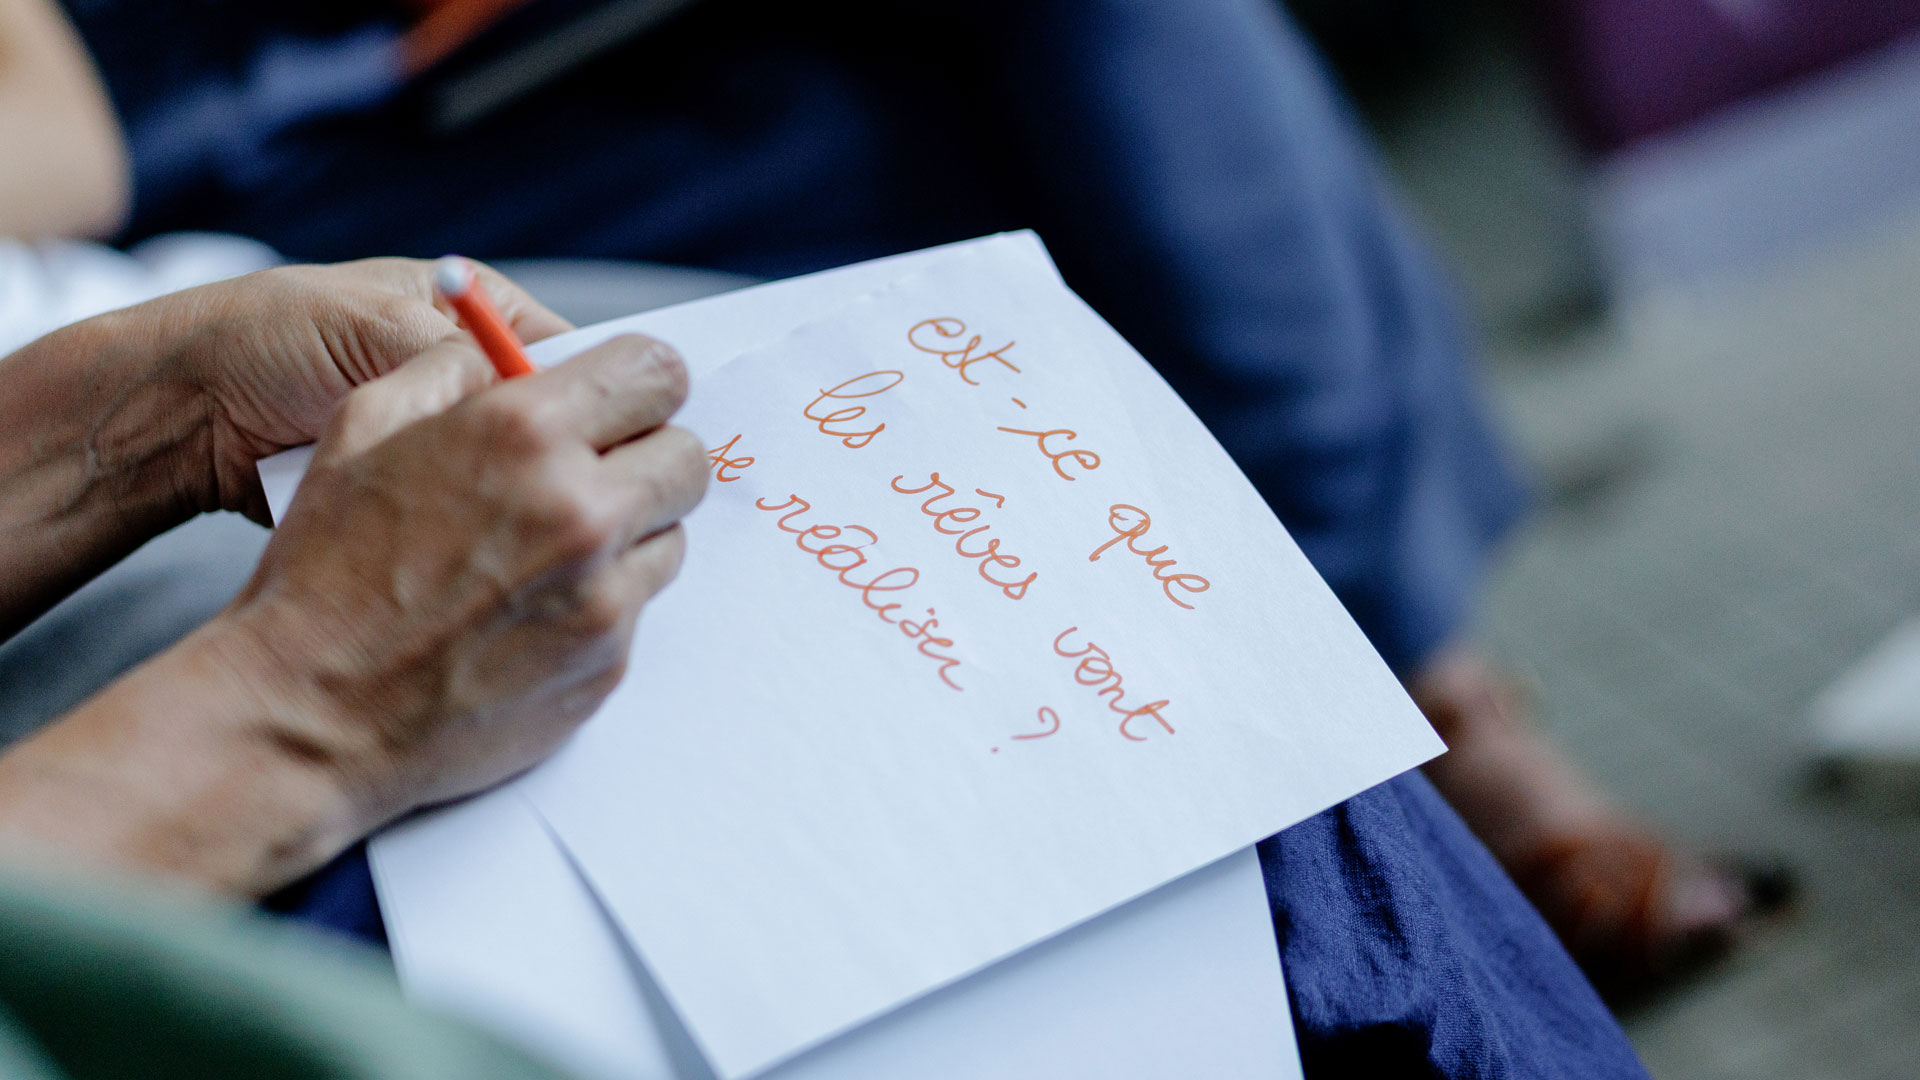 est-ce que
les rêves vont
se réaliser ?